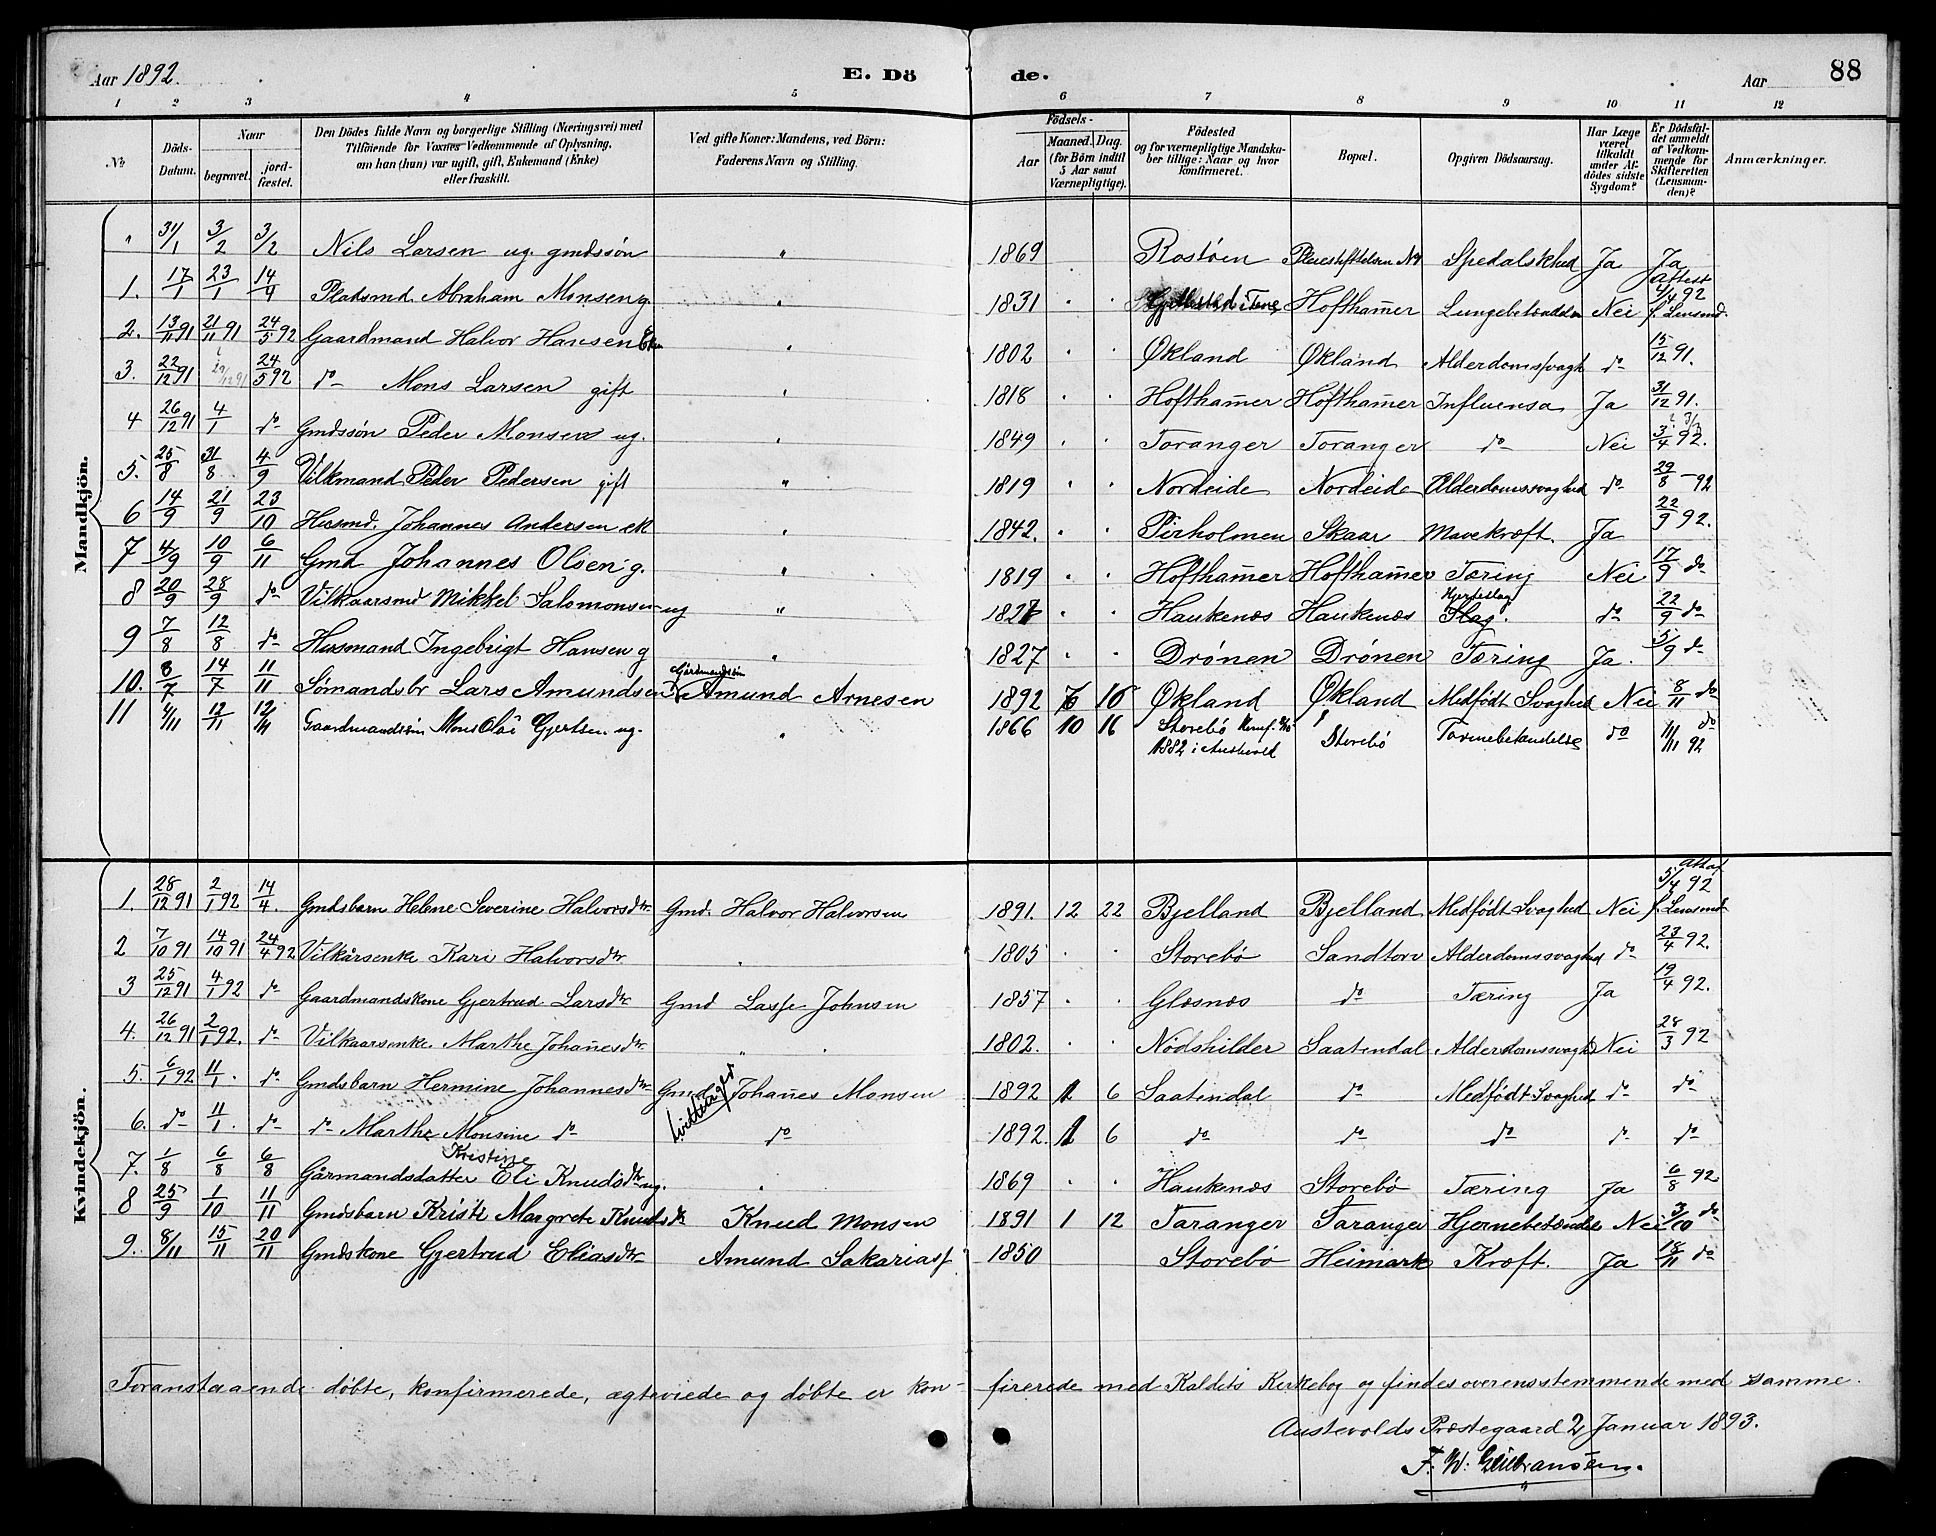 Aar 1892. E. Dö de. Aar 88
1 2 3 4 5 6 7 8 9 10 11 12
№ Döds-Datum. Naar begravet. jordfæstet. Den Dödes fulde Navn og borgerlige Stilling (Næringsvei) med Tilföiende for Voxnes Vedkommende af Oplysning, om han (hun) var ugift, gift, Enkemand (Enke) eller fraskilt. Ved gifte Koner: Mandens, ved Börn: Faderens Navn og Stilling. Födsels- Aar Maaned. Dag. (for Börn indtil 5 Aar samt Værnepligtige). Födested og for værnepligtige Mandskaber tillige: Naar og hvor konfirmeret. Bopæl. Opgiven Dödsaarsag. Har Læge været tilkaldt under Afdödes sidste Sygdom? Er Dödsfaldet anmeldt af Vedkommende for Skifteretten (Lensmanden)? Anmærkninger.
Mandkjön.
" 31/1 3/2 3/2 Nils Larsen ug. gmdssøn " 1869 Rostøen Spedalskhed Ja Ja
1. 17/1 23/1 14/4 Pladsmd. Abraham Monsen g. " 1831 Hoftham̄er Nei Attest 4/4 92 f. Lensmd.
2. 13/11 91 21/11 91 24/5 92 Gaardmand Halvor Hansen " 1802 Økland Økland Alderdomssvagh do 15/12 91.
3. 22/12 91 29/12 91 24/5 92 do Mons Larsen gift " 1818 Hoftham̄er Hoftham̄er Influensa Ja 31/12 91.
4 26/12 91 4/1 do Gmdssøn Peder Monsen ug. " 1849 Toranger Toranger do Nei 3/4 92.
5. 25/8 31/8 4/9 Vilkmand Peder Pedersen gift " 1819 Nordeide Nordeide Alderdomssvaghed do 29/8 - 92
6 14/9 21/9 23/10 Husmd. Johannes Andersen ek " 1842. Pirholmen Skaar Mavekræft. Ja 22/9 92.
7 4/9 10/9 6/11 Gmd Johannes Olsen g. " 1819 Hoftham̄er Hoftham̄er Tæring Nei 17/9 do
8 20/9 28/9 do Vilkaarsmd Mikkel Salomonsen ug " 1827 Haukenæs Haukenæs Hjerteslag Slag. do 22/9 do
9 7/8 12/8 do Husmand Ingebrigt Hansen g " 1827 Drønen Drønen Tæring Ja. 5/9 do
10. 8/7 14/7 11/11 Sømandsbr Lars Amundsen Gårdmandssøn Amund Arnesen 1892 6 16 Økland Økland Medfødt Svaghed Nei 8/11 do
11 4/11 12/11 12/11 Gaardmandssøn Mons Olai Gjertsen ug. " 1866 10 16 Storebø Konf. 1882 i Austevold Storebø do 11/11 92 do
Kvindekjön.
1. 28/12 91 2/1 92 14/4. Gmdsbarn Helene Severine Halvorsdtr Gmd. Halvor Halvorsen 1891. 12 22 Bjelland Bjelland Medfødt Svaghed Nei 5/4 92 f. Lensmd
2 7/10 91 14/10 91 24/4 92 Vilkårsenke Kari Halvorsdtr " 1805 Storebø Sandtorv Alderdomssvaghed do 23/4 92.
3 25/12 91 4/1 92 do Gaardmandskone Gjertrud Larsdtr Gmd Lasse Johnsen 1857 Glæsnæs do Tæring Ja 19/4 92.
4. 26/12 91 2/1 92. do Vilkaarsenke Marthe Johan̄esdtr. " 1802. Nødshilder Saatendal Alderdomssvagh Nei 28/3 92
5. 6/1 92 11/1. do Gmdsbarn Hermine Johannesdtr Gmd Johan̄es Monsen 1892 1 6 Saatendal do Medfødt Svaghed do do
6. do 11/1. do do Marthe Monsine do tvillinger do 1892. 1 6 do do do do do
7. 1/8 6/8 6/8 Gårmandsdatter Eli Kristine Knudsdtr ug. " 1869 Haukenæs Storebø Tæring Ja 6/8 92
8 25/9 1/10 11/11 Gmdsbarn Kristi Margrete Knudsdtr Knud Monsen 1891 1 12 Taranger Taranger Hjernebetændelse Nei 3/10 do
9. 8/11 15/11 20/11 Gmdskone Gjertrud Eliasdtr Amund Sakariass. 1850 Storebø Heimark Kræft. Ja 18/11 do
Foranstaaende døbte, konfirmerede, ægteviede og døbte er konfirerede med Kaldets Kirkebog og findes overensstemmende med samme.
Austevolds Præstegaard 2 Januar 1893.